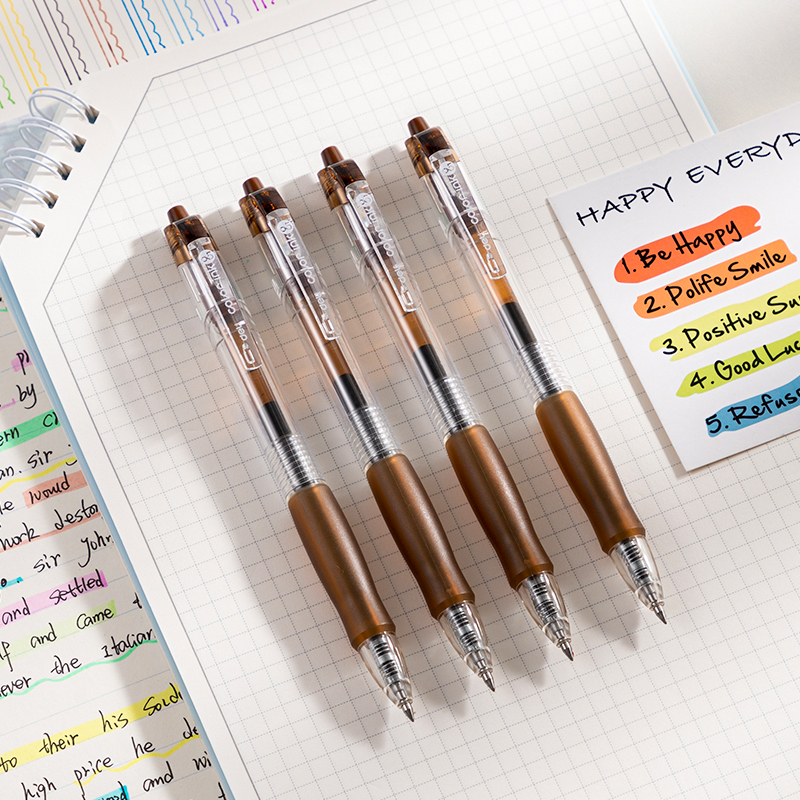 HAPPY EVERYD
1. Be Happy
2. Polife Smile
3. Positive Su
4. Good Luc
5. Refuse
by
ern
an. sir
he would
work destor
sir John
and settled
lf and came t
never the Italian
to their his Sold
high price he de
and wi